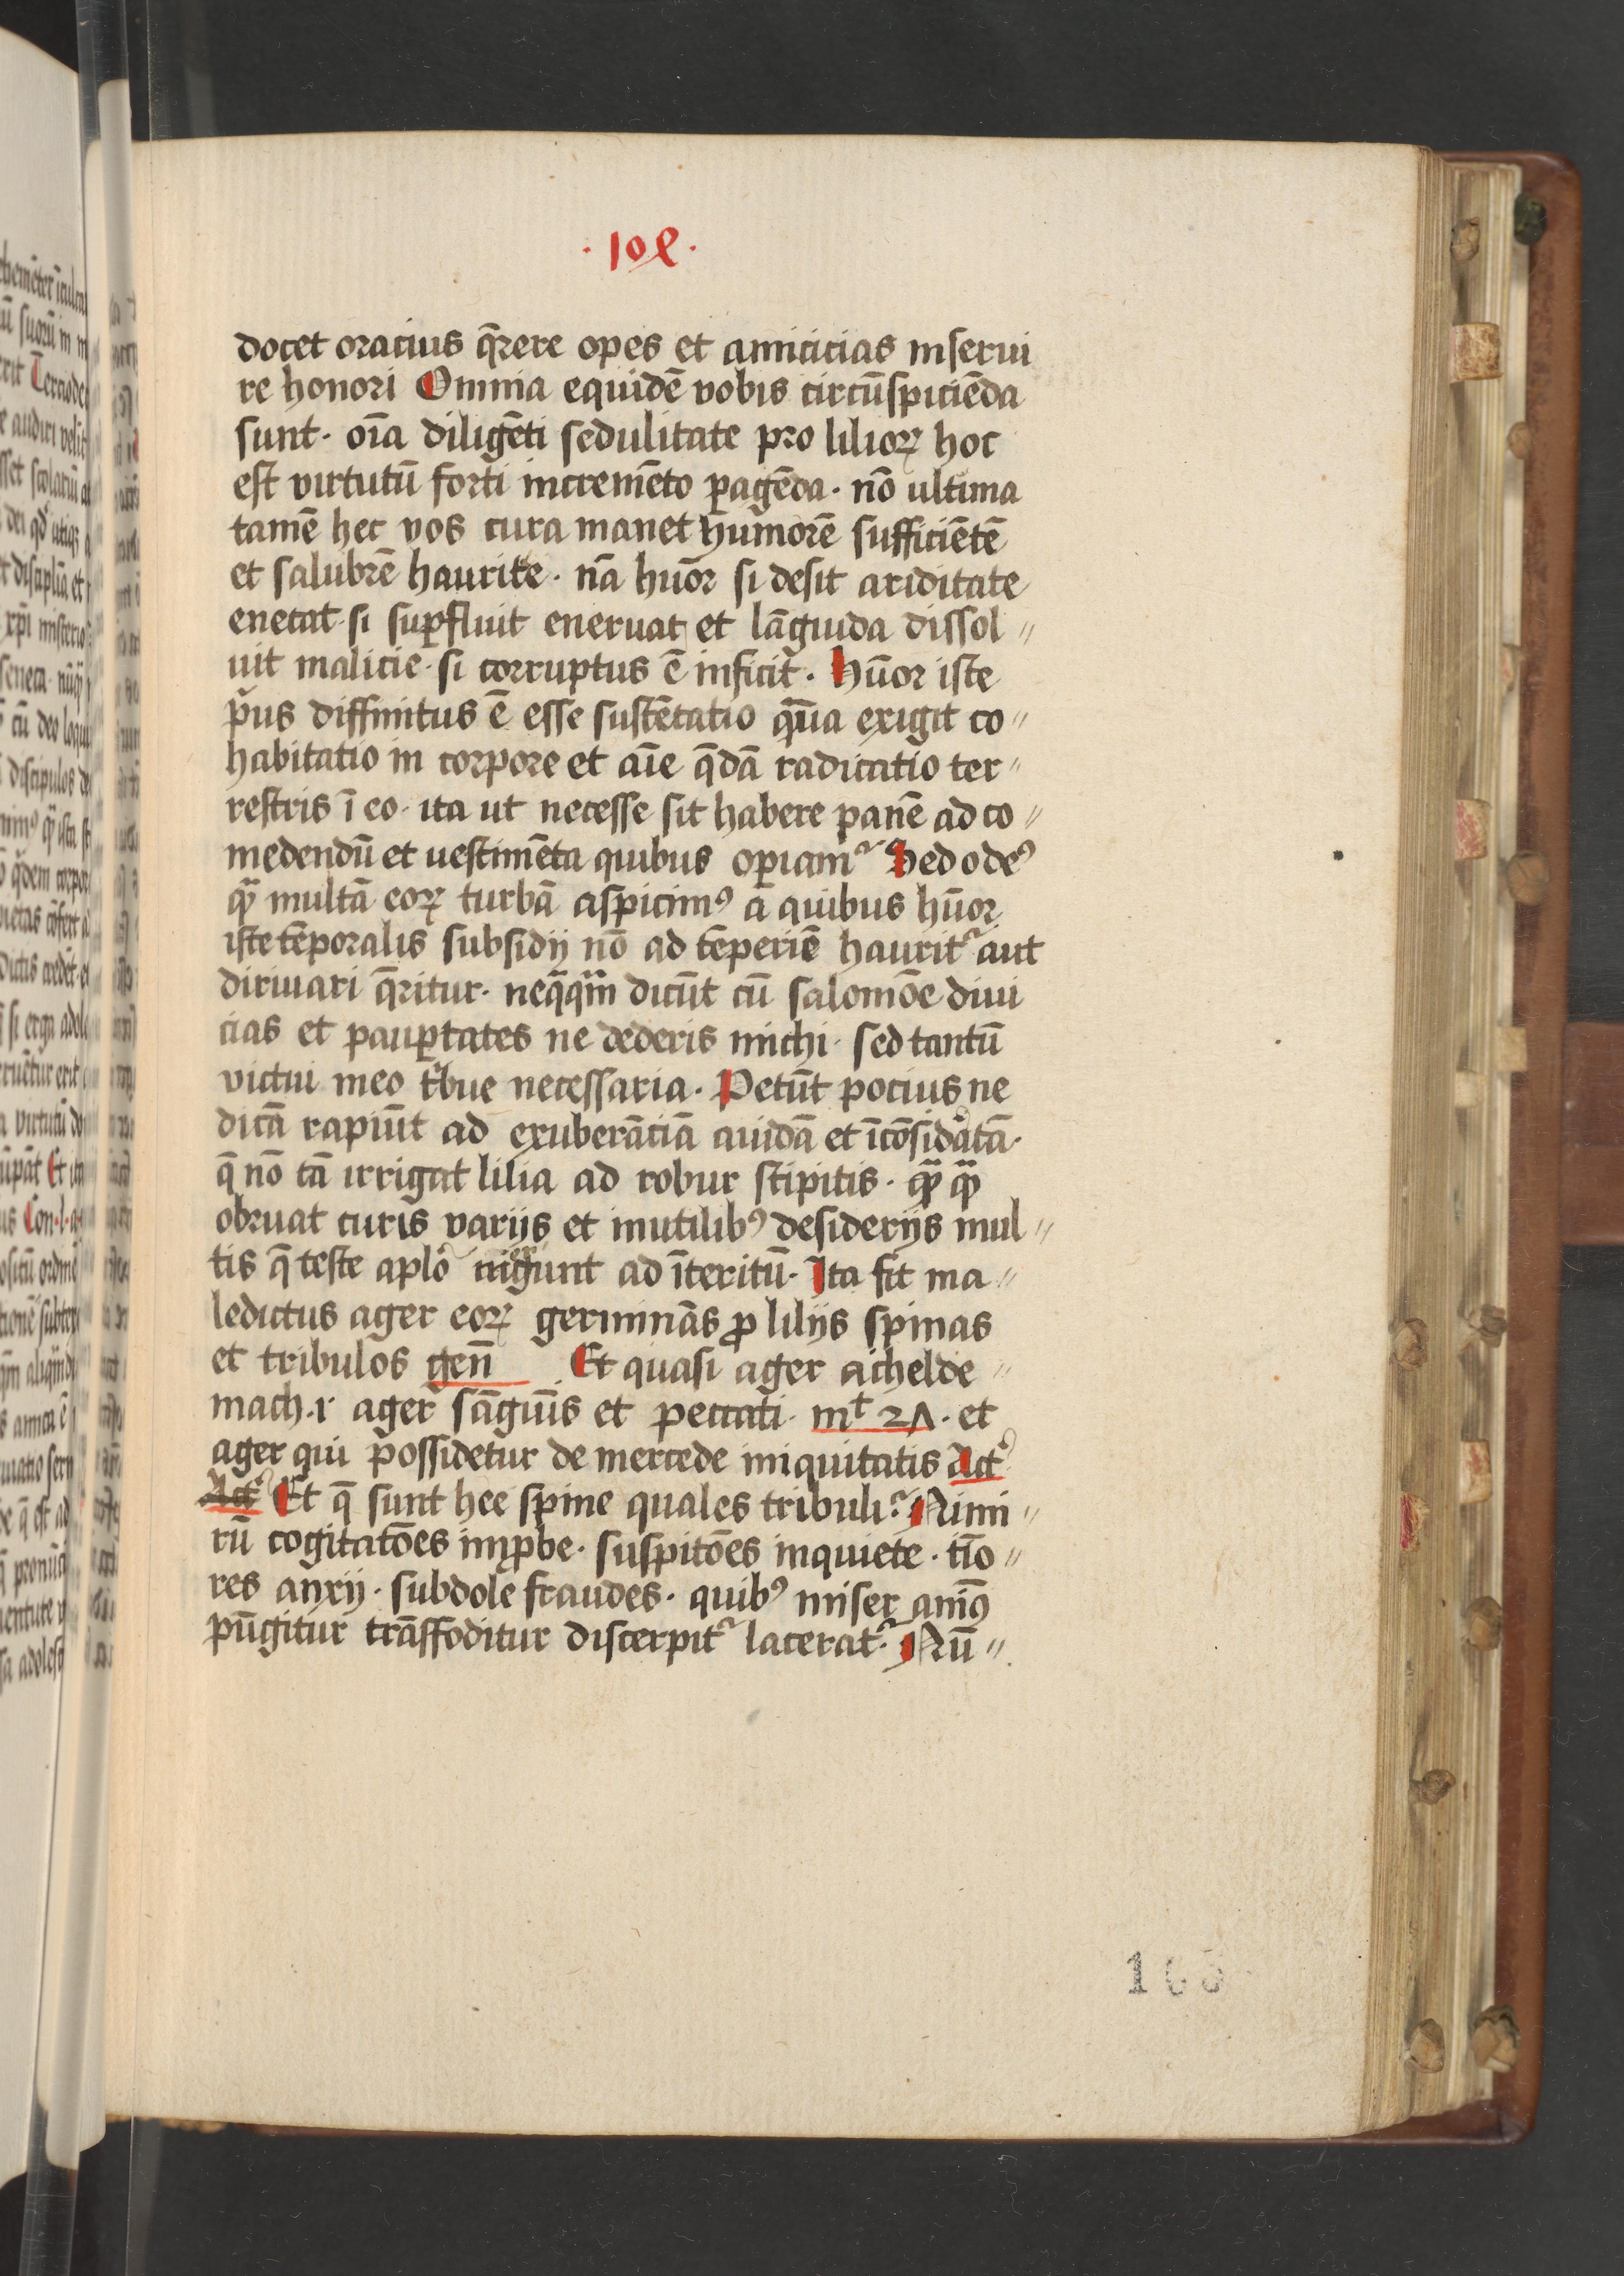 ·10ꝭ·
docet oracius q̄rere opes et amicicias inserui
re honori Omnia equidē vobis circūspiciēda
sunt· oīa diligēti sedulitate pro lilioꝝ hoc
est virtutū forti incremēto ꝑagēda· nō ultima
tamē hec vos cura manet humorē sufficiētē
et salubrē haurite· nā huōr si desit ariditate
enecat· si suꝑfluit eneruat et lāguida dissol〃
uit malicie· si corruptus ē inficit· Hūor iste
pͥus diffinitus ē esse sustētatio quā exigit co〃
habitatio in corpore et aīe q̄dā radicatio ter〃
restris ī eo· ita ut necesse sit habere panē ad co〃
medendū et uestimēta quibus oꝑiamᷣ Sed o deꝰ
qͣꝫ multā eoꝝ turbā aspicimꝰ a quibus hūor
iste tēporalis subsidij nō ad tēperiē hauritᷣ aut
diriuari q̄ritur· neq̄qͣm dicūt cū salomōe diui
cias et pauꝑtates ne dederis michi· sed tantū
victui meo tͥbue necessaria· Petūt pocius ne
dicā rapiūt ad exuberāciā auidā et īcōsid̓atā·
q̄ nō tā irrigat lilia ad robur stipitis· qͣꝫ qͣꝫ
obruat curis varijs et inutilibꝰ desiderijs mul〃
tis q̄ teste aplō mergunt ad īteritū· Ita fit ma〃
ledictus ager eoꝝ germinās ꝓ lilijs spinas
et tribulos gen̄ Et quasi ager achelde〃
mach· i· ager sāguīs et peccati· mᵗ 2Λ· et
ager qui possidetur de mercede iniquitatis Actꝰ
Actꝰ Et q̄ sunt hee spine quales tribuli? Nimi〃
rū cogitatōes imꝓbe· suspitōes inquiete· tīo〃
res anxij· subdole fraudes· quibꝰ miser animꝰ
pūgitur trāsfoditur discerpitᷣ laceratᷣ· Nū〃